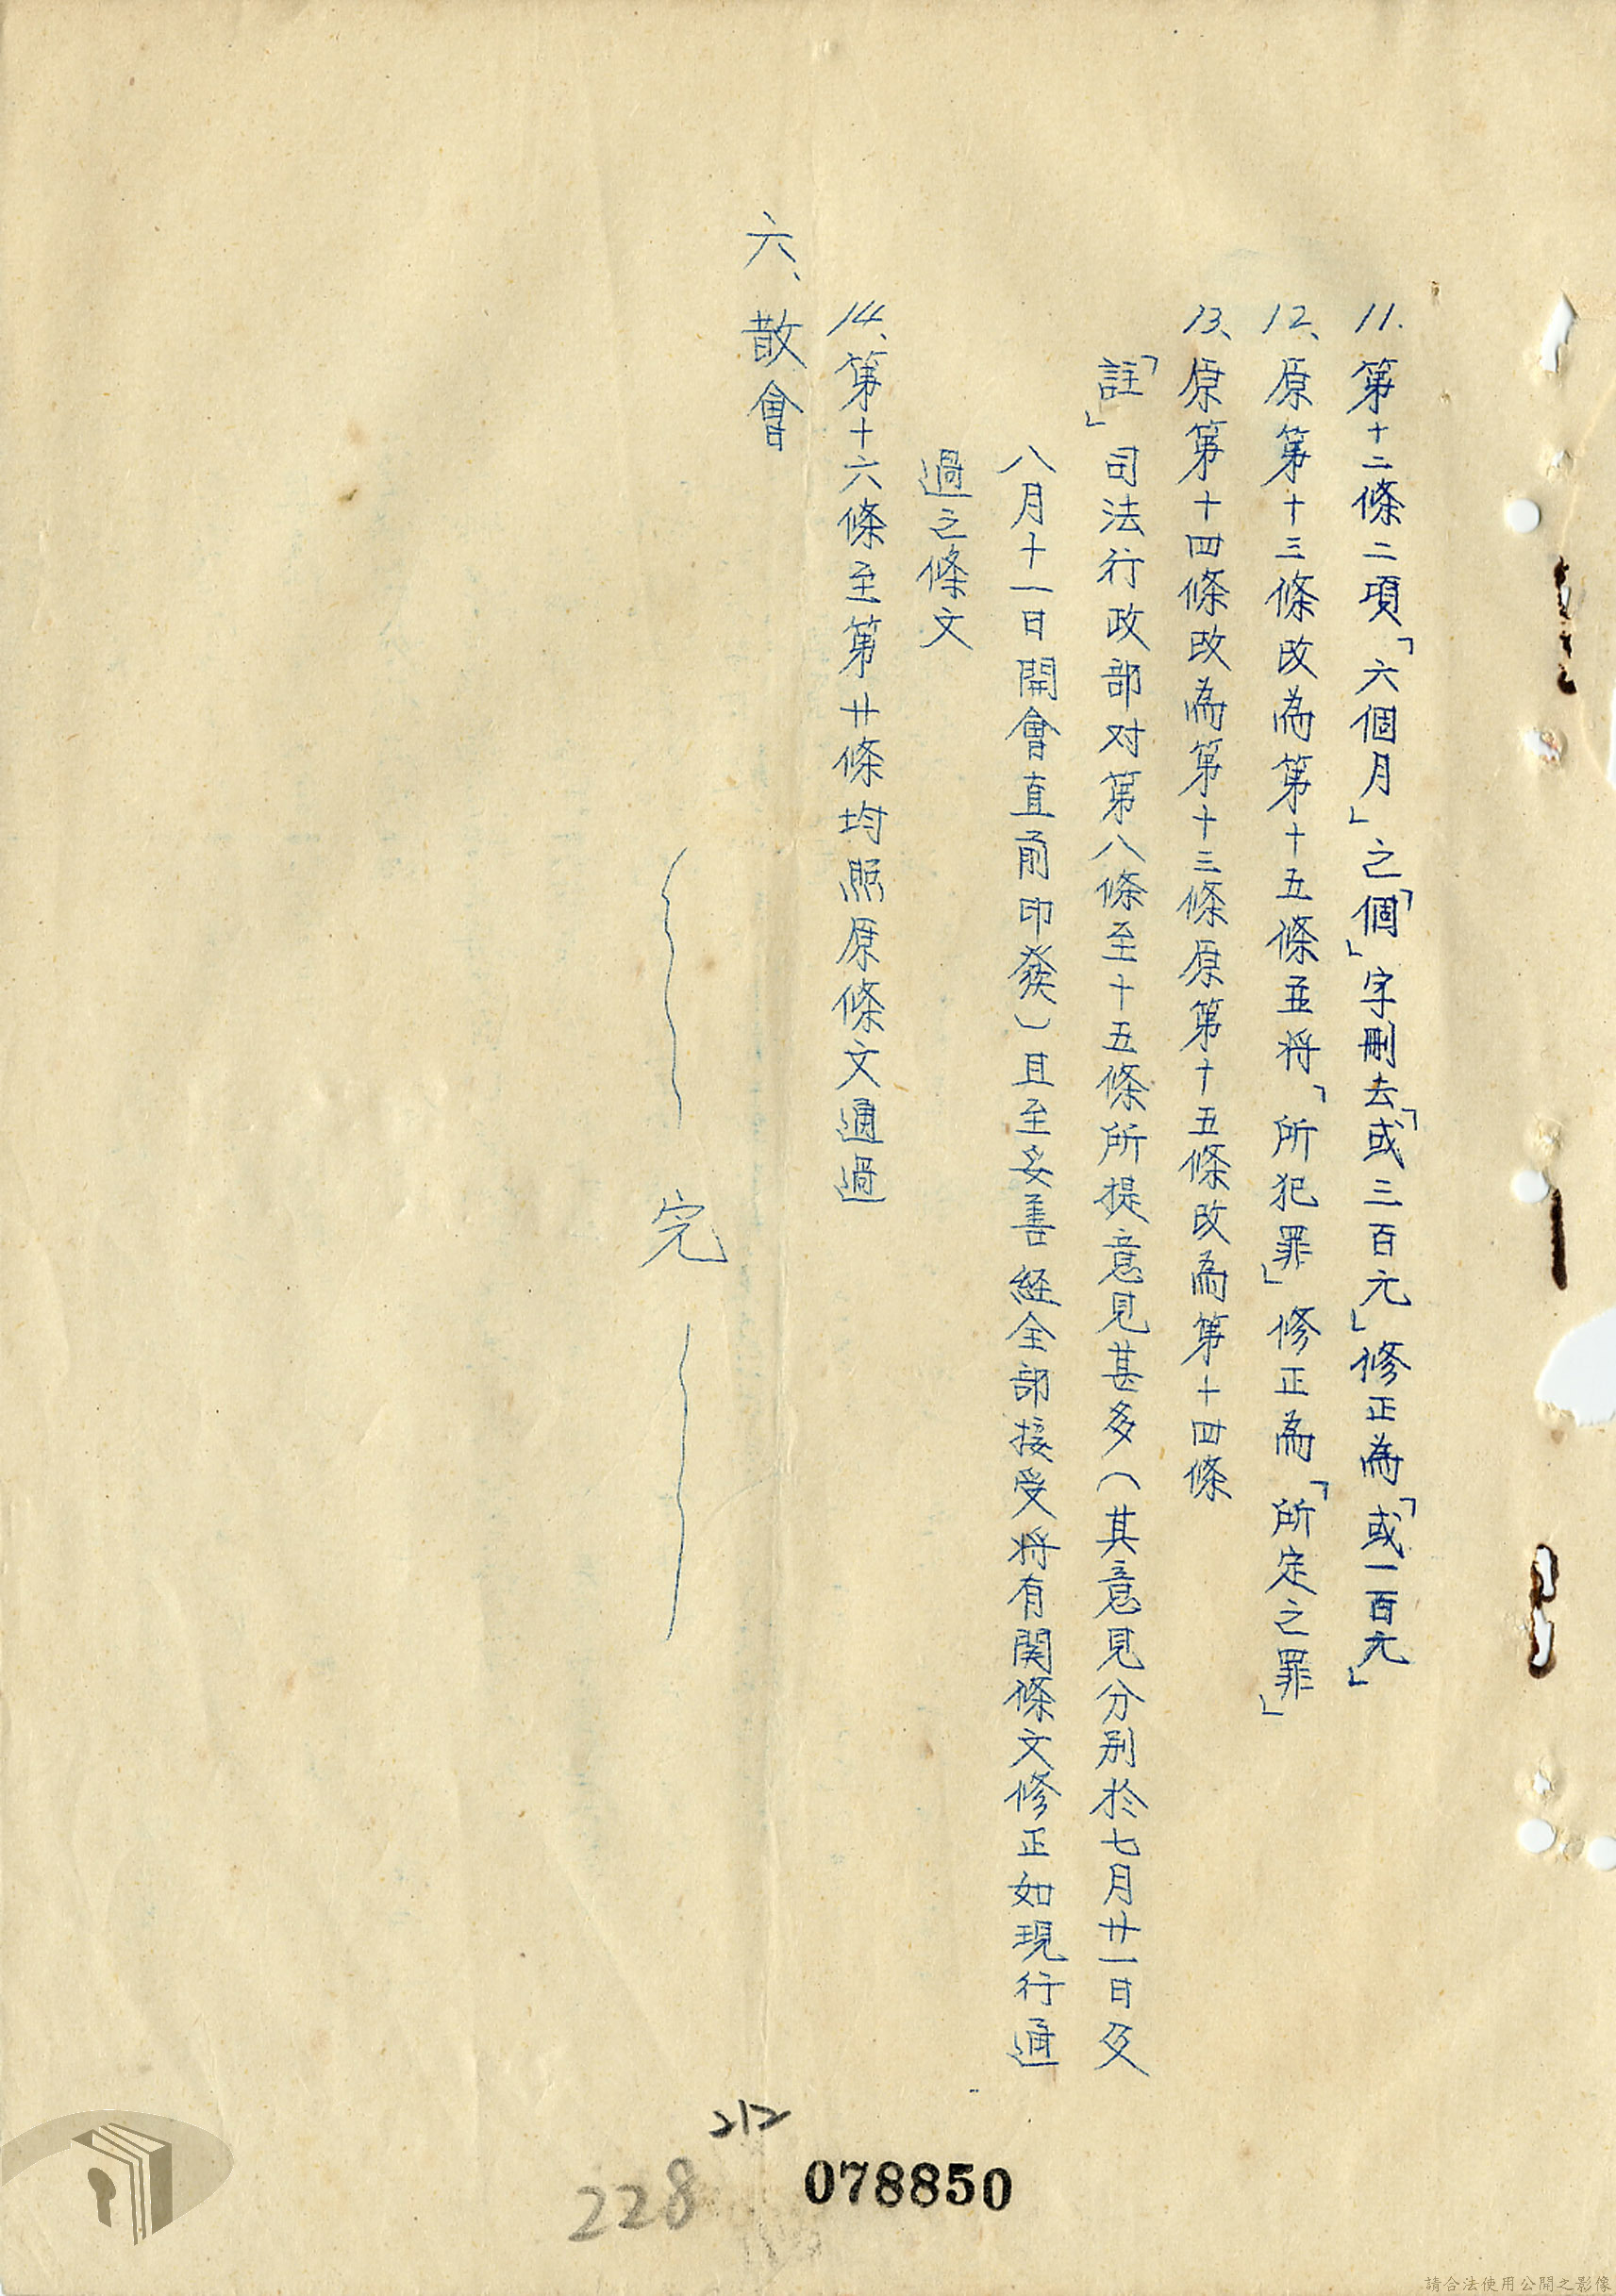 11.第十二條二項「六個月」之「個」字刪去「或三百元」修正為「或一百元」
12、原第十三條改為第十五條並将「所犯罪」修正為「所定之罪」
13、原第十四條改為第十三條原第十五條改為第十四條
「註」司法行政部对第八條至十五條所提意見甚多(其意見分别於七月廿一日及
八月十一日開會直前印發)且至妥善経全部接受将有関條文修正如現行通
過之條文
14、第十六條至第廿條均照原條文通過
六、散會
完
212
228
078850
請合法使用公開之影像